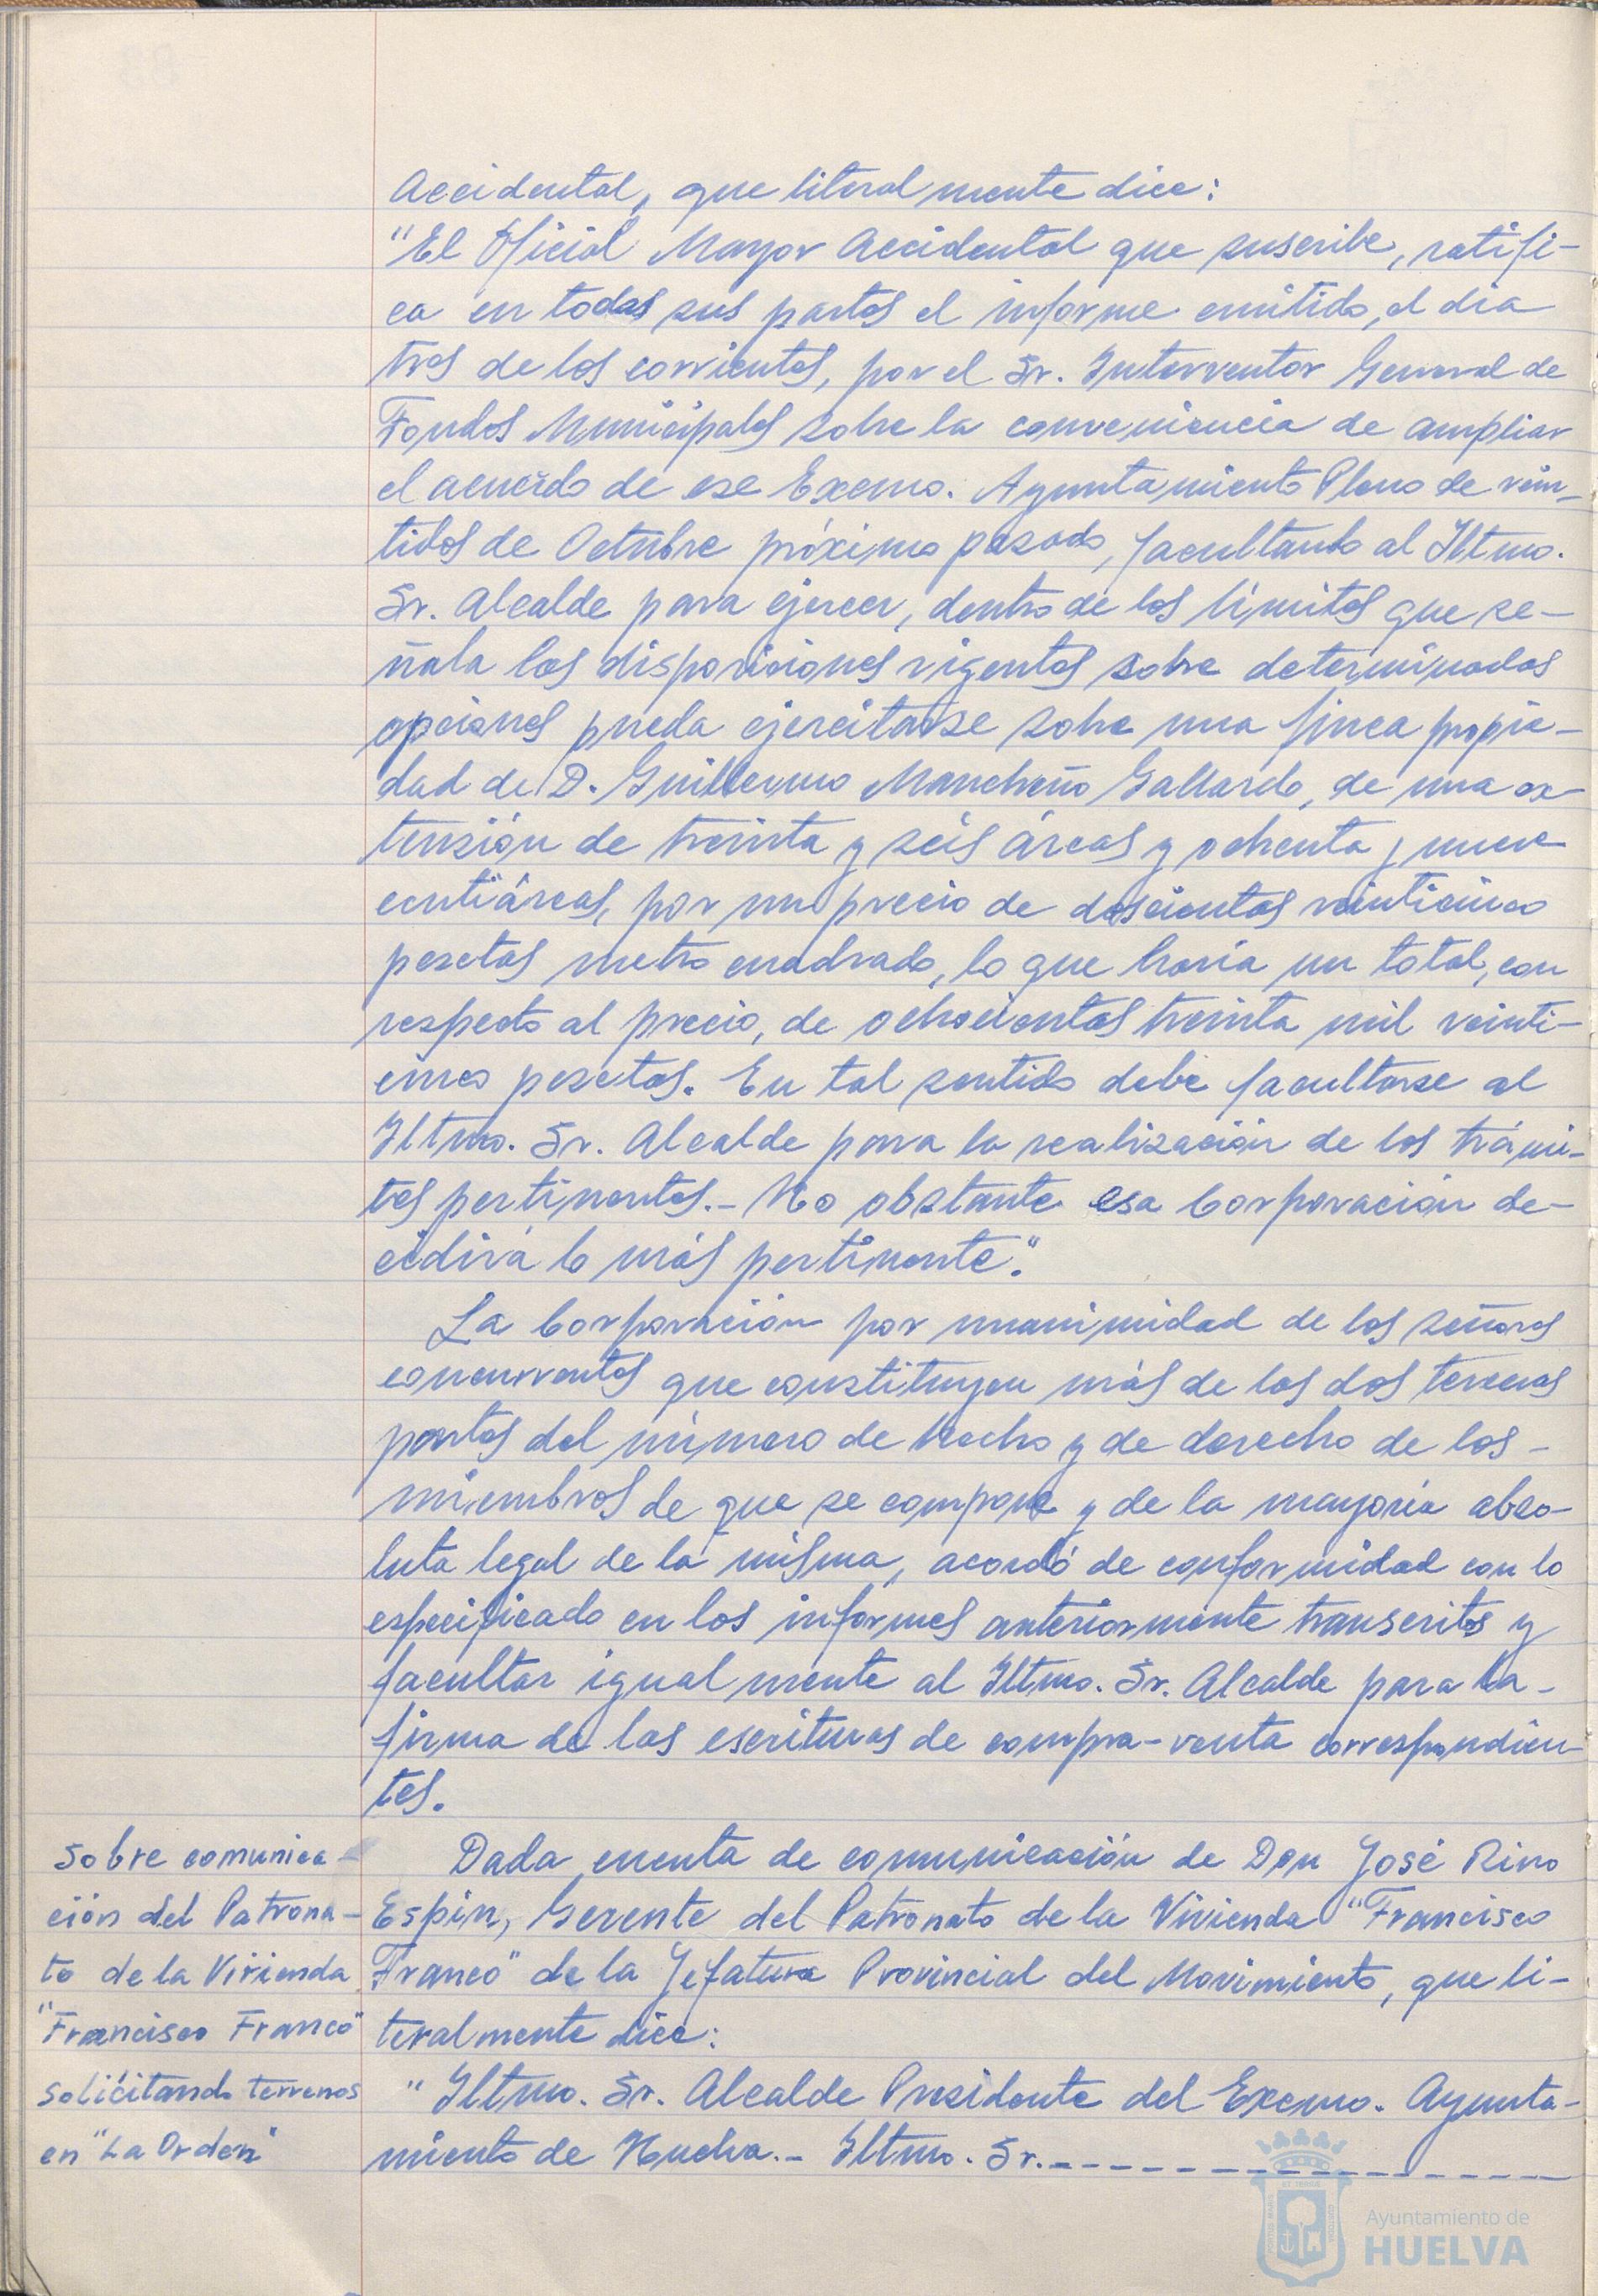 Accidental, que literalmente dice:
"El Oficial Mayor Accidental que suscribe, ratifi-
ca en todas sus partes el informe emitido, el dia
tres de los corrientes, por el Sr. Interventor General de
Fondos Municipales sobre la conveniencia de ampliar
el acuerdo de ese Excmo. Ayuntamiento Pleno de vein-
tidos de Octubre próximo pasado, facultando al Iltmo.
Sr. Alcalde para ejercer, dentro de los límites que se-
ñala las disposiciones vigentes sobre determinadas
opciones pueda ejercitarse sobre una finca propie-
dad de D. Guillermo Mancheño Gallardo, de una ex-
tensión de treinta y séis áreas y ochenta y nueve
centiáreas, por un precio de doscientas veinticinco
pesetas metro cuadrado, lo que haría un total, con
respecto al precio, de ochocientas treinta mil veinti-
cinco pesetas. En tal sentido debe facultarse al
Iltmo. Sr. Alcalde para la realización de los trámi-
tes pertinentes.- No obstante esa Corporación de-
cidirá lo más pertinente."
La Corporación por unanimidad de los señores
concurrentes que constituyen más de las dos terceras
partes del número de hecho y de derecho de los -
miembros de que se compone y de la mayoría abso-
luta legal de la misma, acordó de conformidad con lo
especificado en los informes anteriormente transcritos y
facultar igualmente al Iltmo. Sr. Alcalde para la -
firma de las escrituras de compra-venta correspondien-
tes.
Sobre comunica-
ción del Patrona-
to de la Vivienda
"Francisco Franco"
solicitando terrenos
en "La Orden"
Dada cuenta de comunicación de Don José Rino
Espin, Gerente del Patronato de la Vivienda "Francisco
Franco" de la Jefatura Provincial del Movimiento, que li-
teralmente dice:
"Iltmo. Sr. Alcalde Presidente del Excmo. Ayunta-
miento de Huelva.- Iltmo. Sr.- - - - - - - - - - - - - - -
Ayuntamiento de
HUELVA